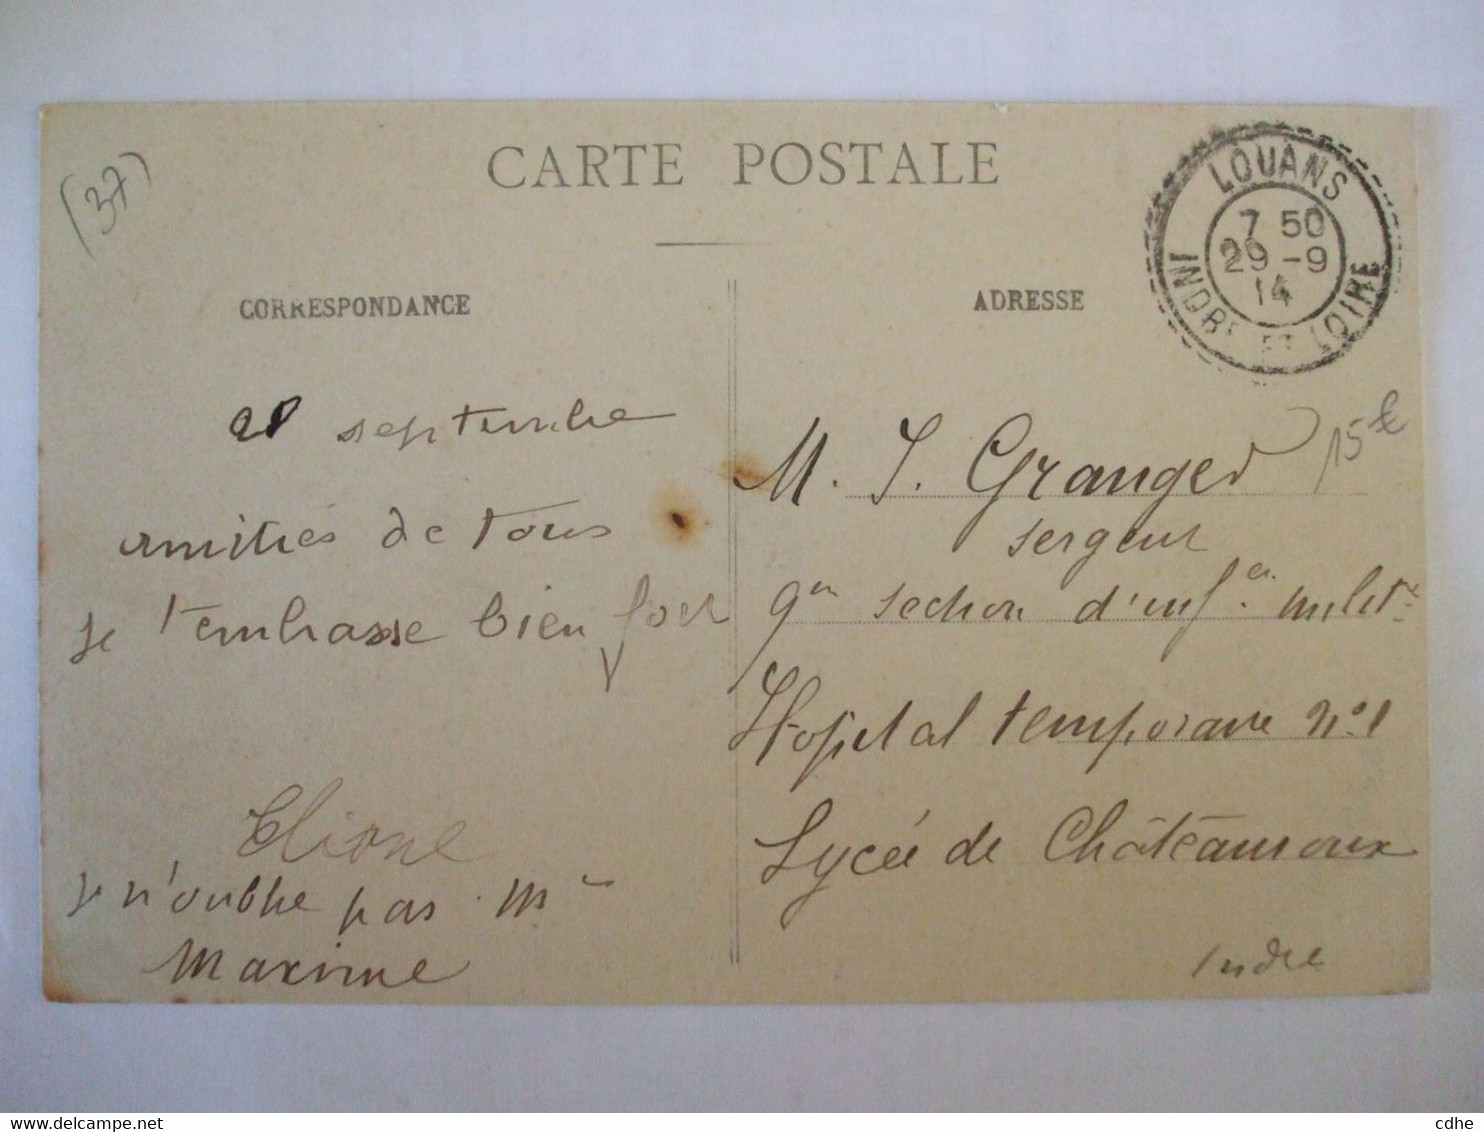 (37)
CARTE POSTALE
LOUANS
7 50
29 -9
14
INDRE ET LOIRE
CORRESPONDANCE
ADRESSE
28 septembre
amitiés de tous
je t'embrasse bien fort
n'oublie pas Mme
Maxime
15 €
M. J. Granger
sergent
9em section d'infer. milit.
Hopital temporaire No 1
Lycée de Châteauroux
Indre
cdhe